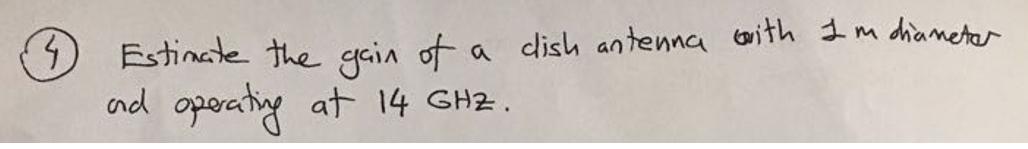 4 Estimate the gain of a dish antenna with 1 m diameter
and operating at 14 GHz.